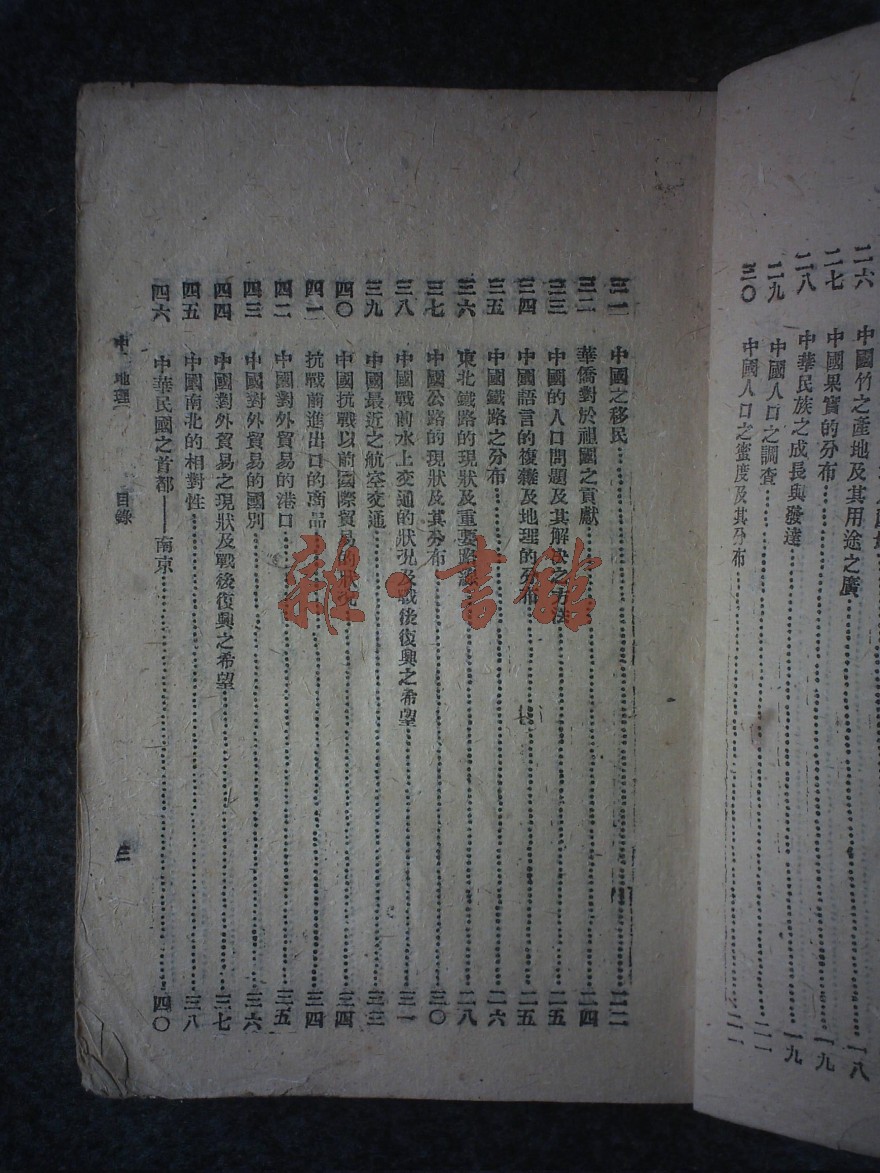 二六 中國竹之產地及其用途之廣 一八
二七 中國果實的分布 一九
二八 中華民族之成長與發達 一九
二九 中國人口之調查 二一
三〇 中國人口之密度及其分布 二一
三一 中國之移民 二二
三二 華僑對於祖國之貢獻 二四
三三 中國的人口問題及其解決之方法 二五
三四 中國語言的複雜及地理的分布 二五
三五 中國鐵路之分布 二六
三六 東北鐵路的現狀及重要路線 二八
三七 中國公路的現狀及其分布 三〇
三八 中國戰前水上交通的狀況及戰後復興之希望 三一
三九 中國最近之航空交通 三三
四〇 中國抗戰以前國際貿易的狀況 三四
四一 抗戰前進出口的商品 三四
四二 中國對外貿易的港口 三五
四三 中國對外貿易的國別 三六
四四 中國對外貿易之現狀及戰後復興之希望 三七
四五 中國南北的相對性 三八
四六 中華民國之首都——南京 四〇
地理 目錄 三
雜·書館